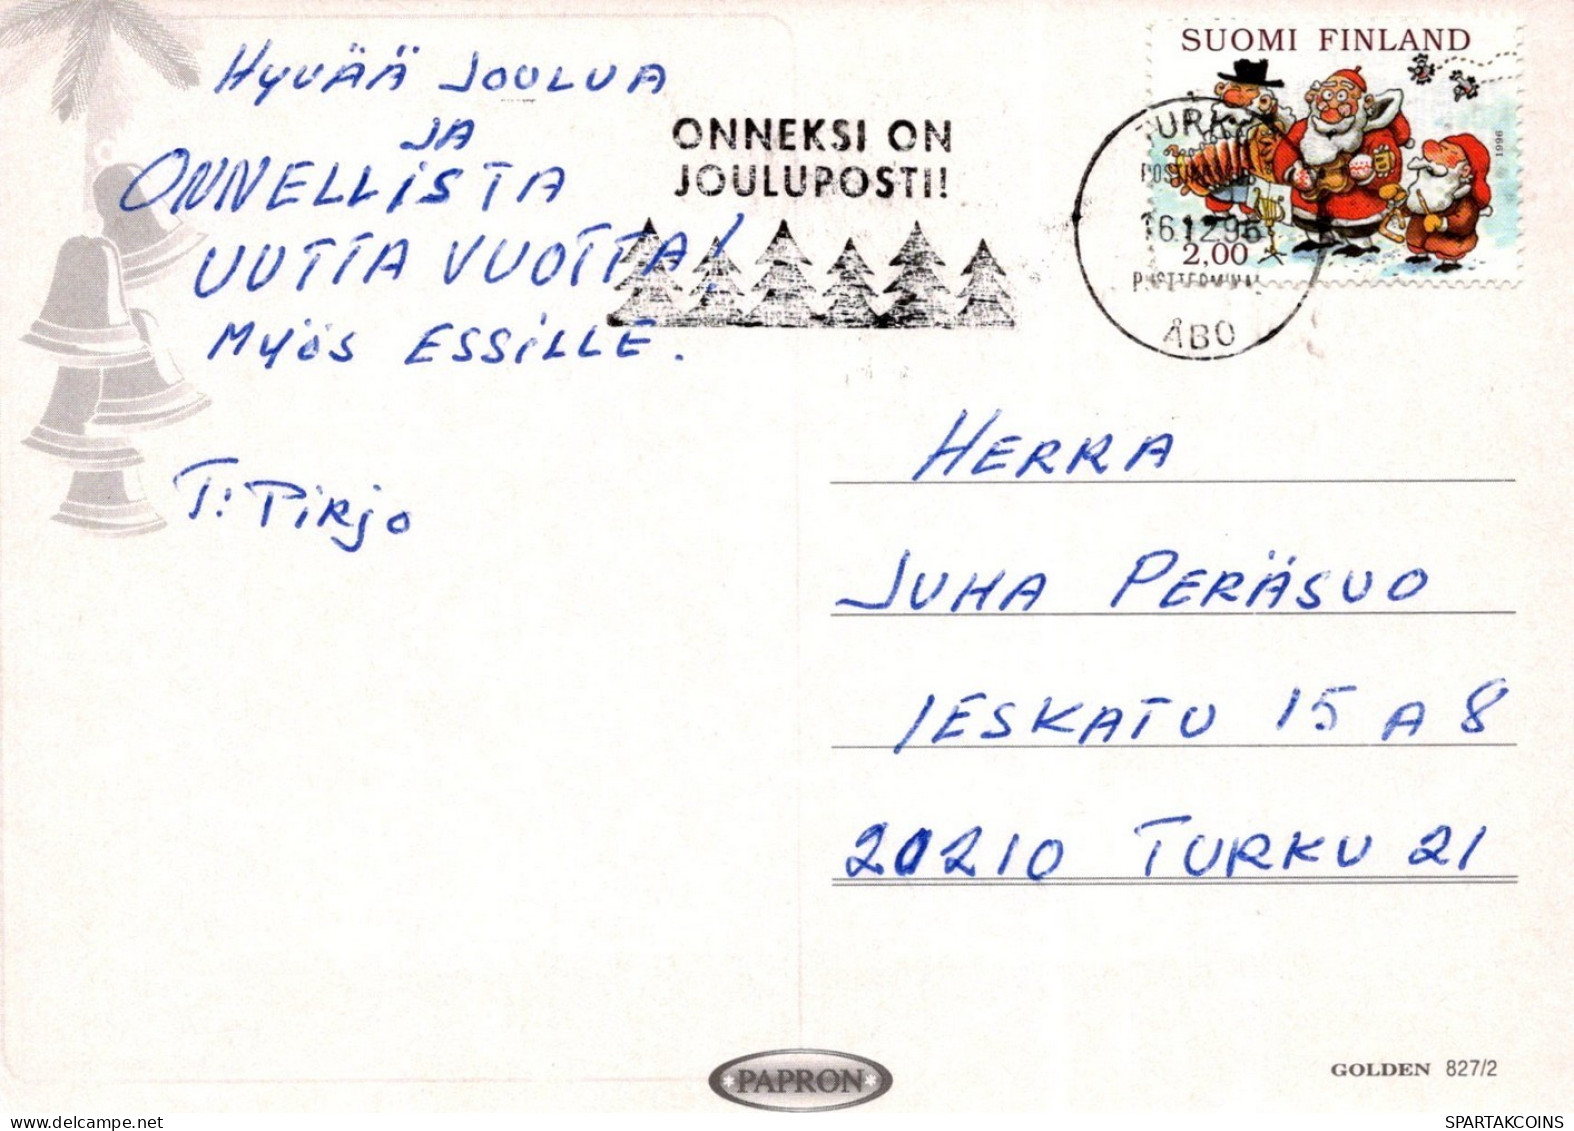 HYVÄÄ JOULUA
JA
ONNELLISTA
UUTTA VUOTTA!
MYÖS ESSILLE.
T: PIRJO
ONNEKSI ON
JOULUPOSTI!
SUOMI FINLAND
1996
2,00
TURKU
16.12.96
ÅBO
HERRA
JUHA PERÄSUO
IESKATU 15 A 8
20210 TURKU 21
PAPRON
GOLDEN 827/2
SPARTAKCOINS